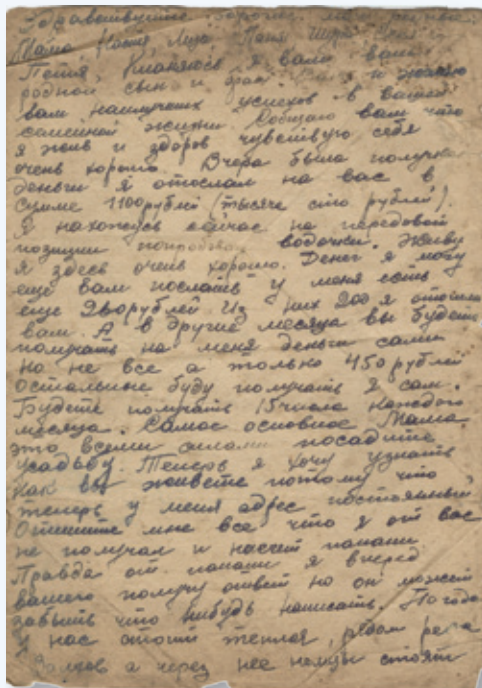 Здравствуйте дорогие мои родные
Мама Настя, Лиза Паня Шура
Петя. Кланяюсь я вам ваш
родной сын и брат и желаю
вам наилучших успехов в вашей
семейной жизни. Сообщаю вам что
я жив и здоров чувствую себя
очень хорошо. Вчера была получка
деньги я отослал на вас в
сумме 1100 рублей (тысяча сто рублей).
Я нахожусь сейчас на передовой
позиции попробовал водочки. Живу
я здесь очень хорошо. Денег я могу
еще вам послать у меня есть
еще рублей. Из них 200 я отошлю
вам. А в другие месяца вы будете
получать на меня деньги сами
но не все а только 450 рублей
остальные буду получать я сам.
Будете получать 15 числа каждого
месяца. Самое основное Мама
это всеми силами посадите
усадьбу. Теперь я хочу узнать
как вы живете потому что
теперь у меня адрес постоянный
Отпишите мне все, что я от вас
не получал и насчет папани
Правда от папани я вперед
вашего получу ответ но он может
забыть что нибудь написать. Погода
у нас стоит теплая, рядом река
а через нее немцы стоят